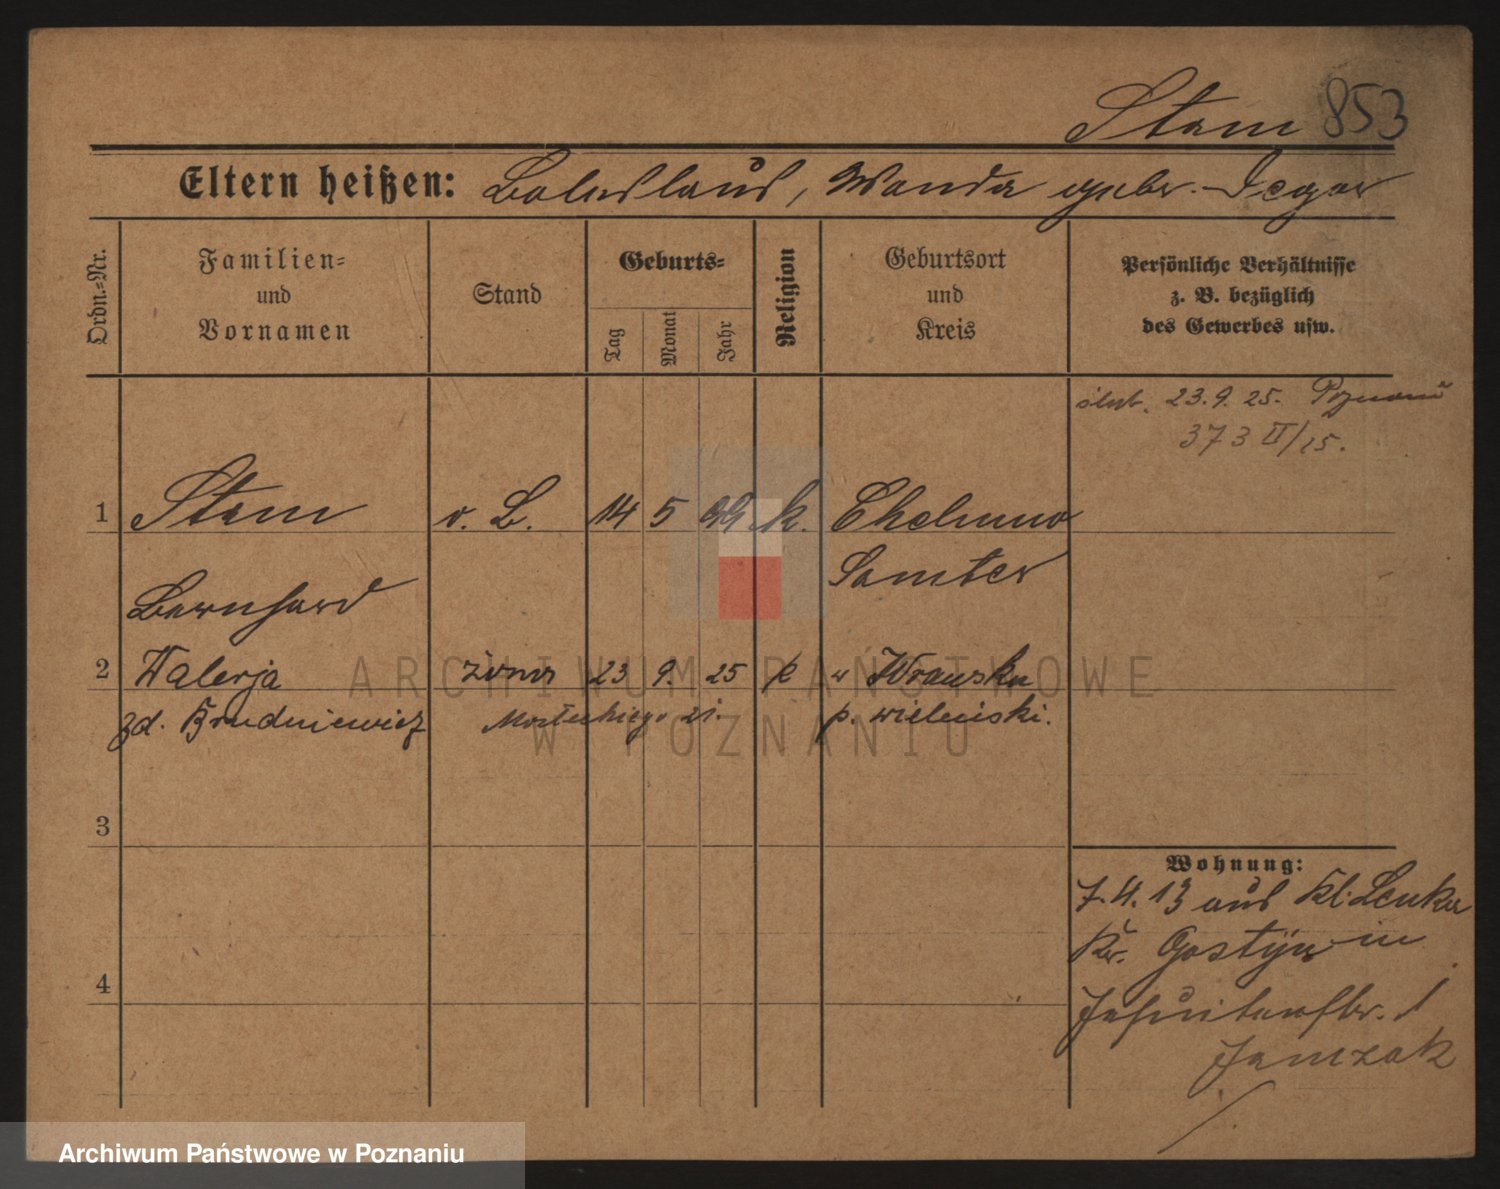 Stam 853
Eltern heißen: Boleslaus, Wanda gebr. Degor
Ordn.-Nr.
Familien- und Vornamen
Stand
Geburts-
Tag Monat Jahr
Religion
Geburtsort und Kreis
Persönliche Verhältnisse
z. B. bezüglich
des Gewerbes usw.
ślub. 23.9.25. Poznań
373 II/25.
1 Stam v. B. 14 5 99 k. Chelmno
Samter
Bernhard
2 Walerja żona 23 9. 25 k w Wronsku
zd. Brudniewicz 21. p. wieluński.
3
Wohnung:
7.4.13 aus Kl. Lenka
Kr. Gostyn in
4
Jesuitenstr. 1
Jamzak
ARCHIWUM PAŃSTWOWE
W POZNANIU
Archiwum Państwowe w Poznaniu